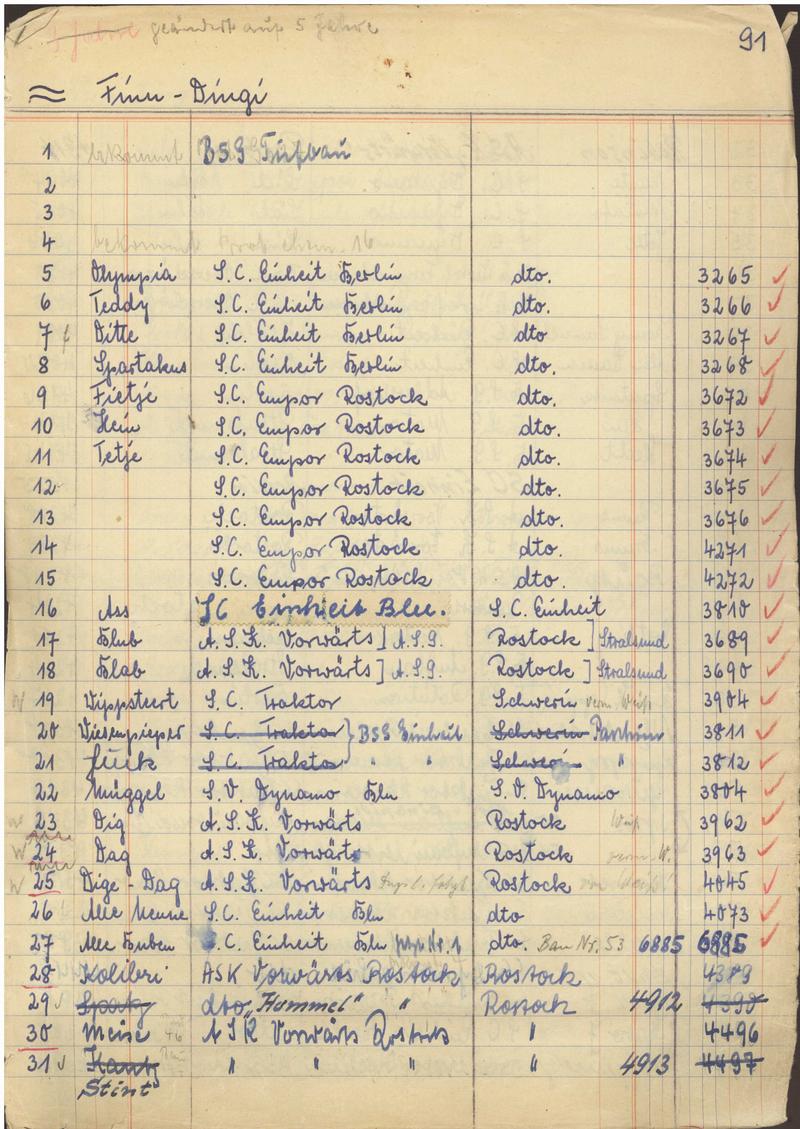 4 Jahre geändert auf 5 Jahre
91
≈ Finn - Dingi
1 bekommt BSG Tiefbau
2
3
4 bekommt 16
5 Olympia S.C. Einheit Berlin dto. 3265 ✓
6 Teddy S.C. Einheit Berlin dto. 3266 ✓
7 Ditte S.C. Einheit Berlin dto 3267 ✓
8 Spartakus S.C. Einheit Berlin dto. 3268 ✓
9 Fietje S.C. Empor Rostock dto. 3672 ✓
10 Hein S.C. Empor Rostock dto. 3673 ✓
11 Tetje S.C. Empor Rostock dto. 3674 ✓
12 S.C. Empor Rostock dto. 3675 ✓
13 S.C. Empor Rostock dto. 3676 ✓
14 S.C. Empor Rostock dto. 4271 ✓
15 S.C. Empor Rostock dto. 4272 ✓
16 Ass SC Einheit Bln. S.C. Einheit 3810 ✓
17 Blub A.S.K. Vorwärts ] A.S.G. Rostock ] Stralsund 3689 ✓
18 Blab A.S.K. Vorwärts ] A.S.G. Rostock ] Stralsund 3690 ✓
19 Wippsteert S.C. Traktor Schwerin 3904 ✓
20 Wiesenpieper S.C. Traktor } BSG Einheit Schwerin Parchim 3811 ✓
21 S.C. Traktor } " " Schwerin " 3812 ✓
22 Müggel S.V. Dynamo Bln S.V. Dynamo 3804 ✓
23 Dig A.S.K. Vorwärts Rostock 3962 ✓
24 Dag A.S.K. Vorwärts Rostock 3963 ✓
25 Dige - Dag A.S.K. Vorwärts Rostock 4045 ✓
26 Alle Neune S.C. Einheit Bln dto 4073 ✓
27 Alle Buben S.C. Einheit Bln dto. Bau Nr. 53 6885 6885 ✓
28 Kolibri ASK Vorwärts Rostock Rostock 4389
29 Spatz dto „Hummel" " Rostock 4912 4390
30 Meise ASK Vorwärts Rostock " 4496
31 Kauz " " " " 4913 4497
Stint